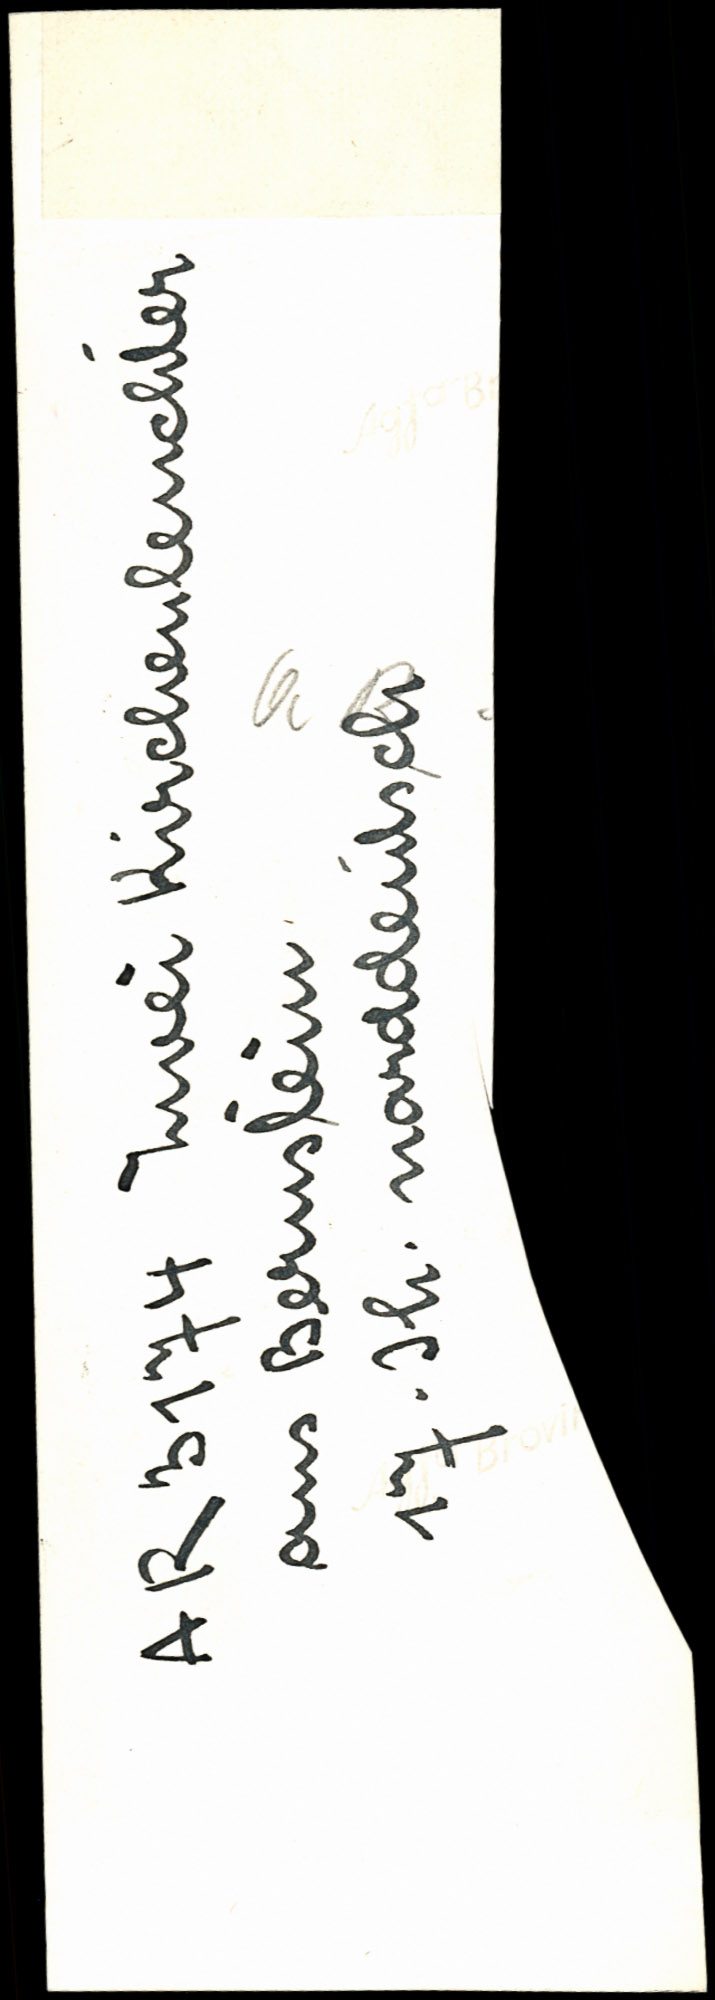 AR 3174 Zwei Kirchenleuchter
aus Bernstein
17. Jh. norddeutsch
a B
Agfa Brovi